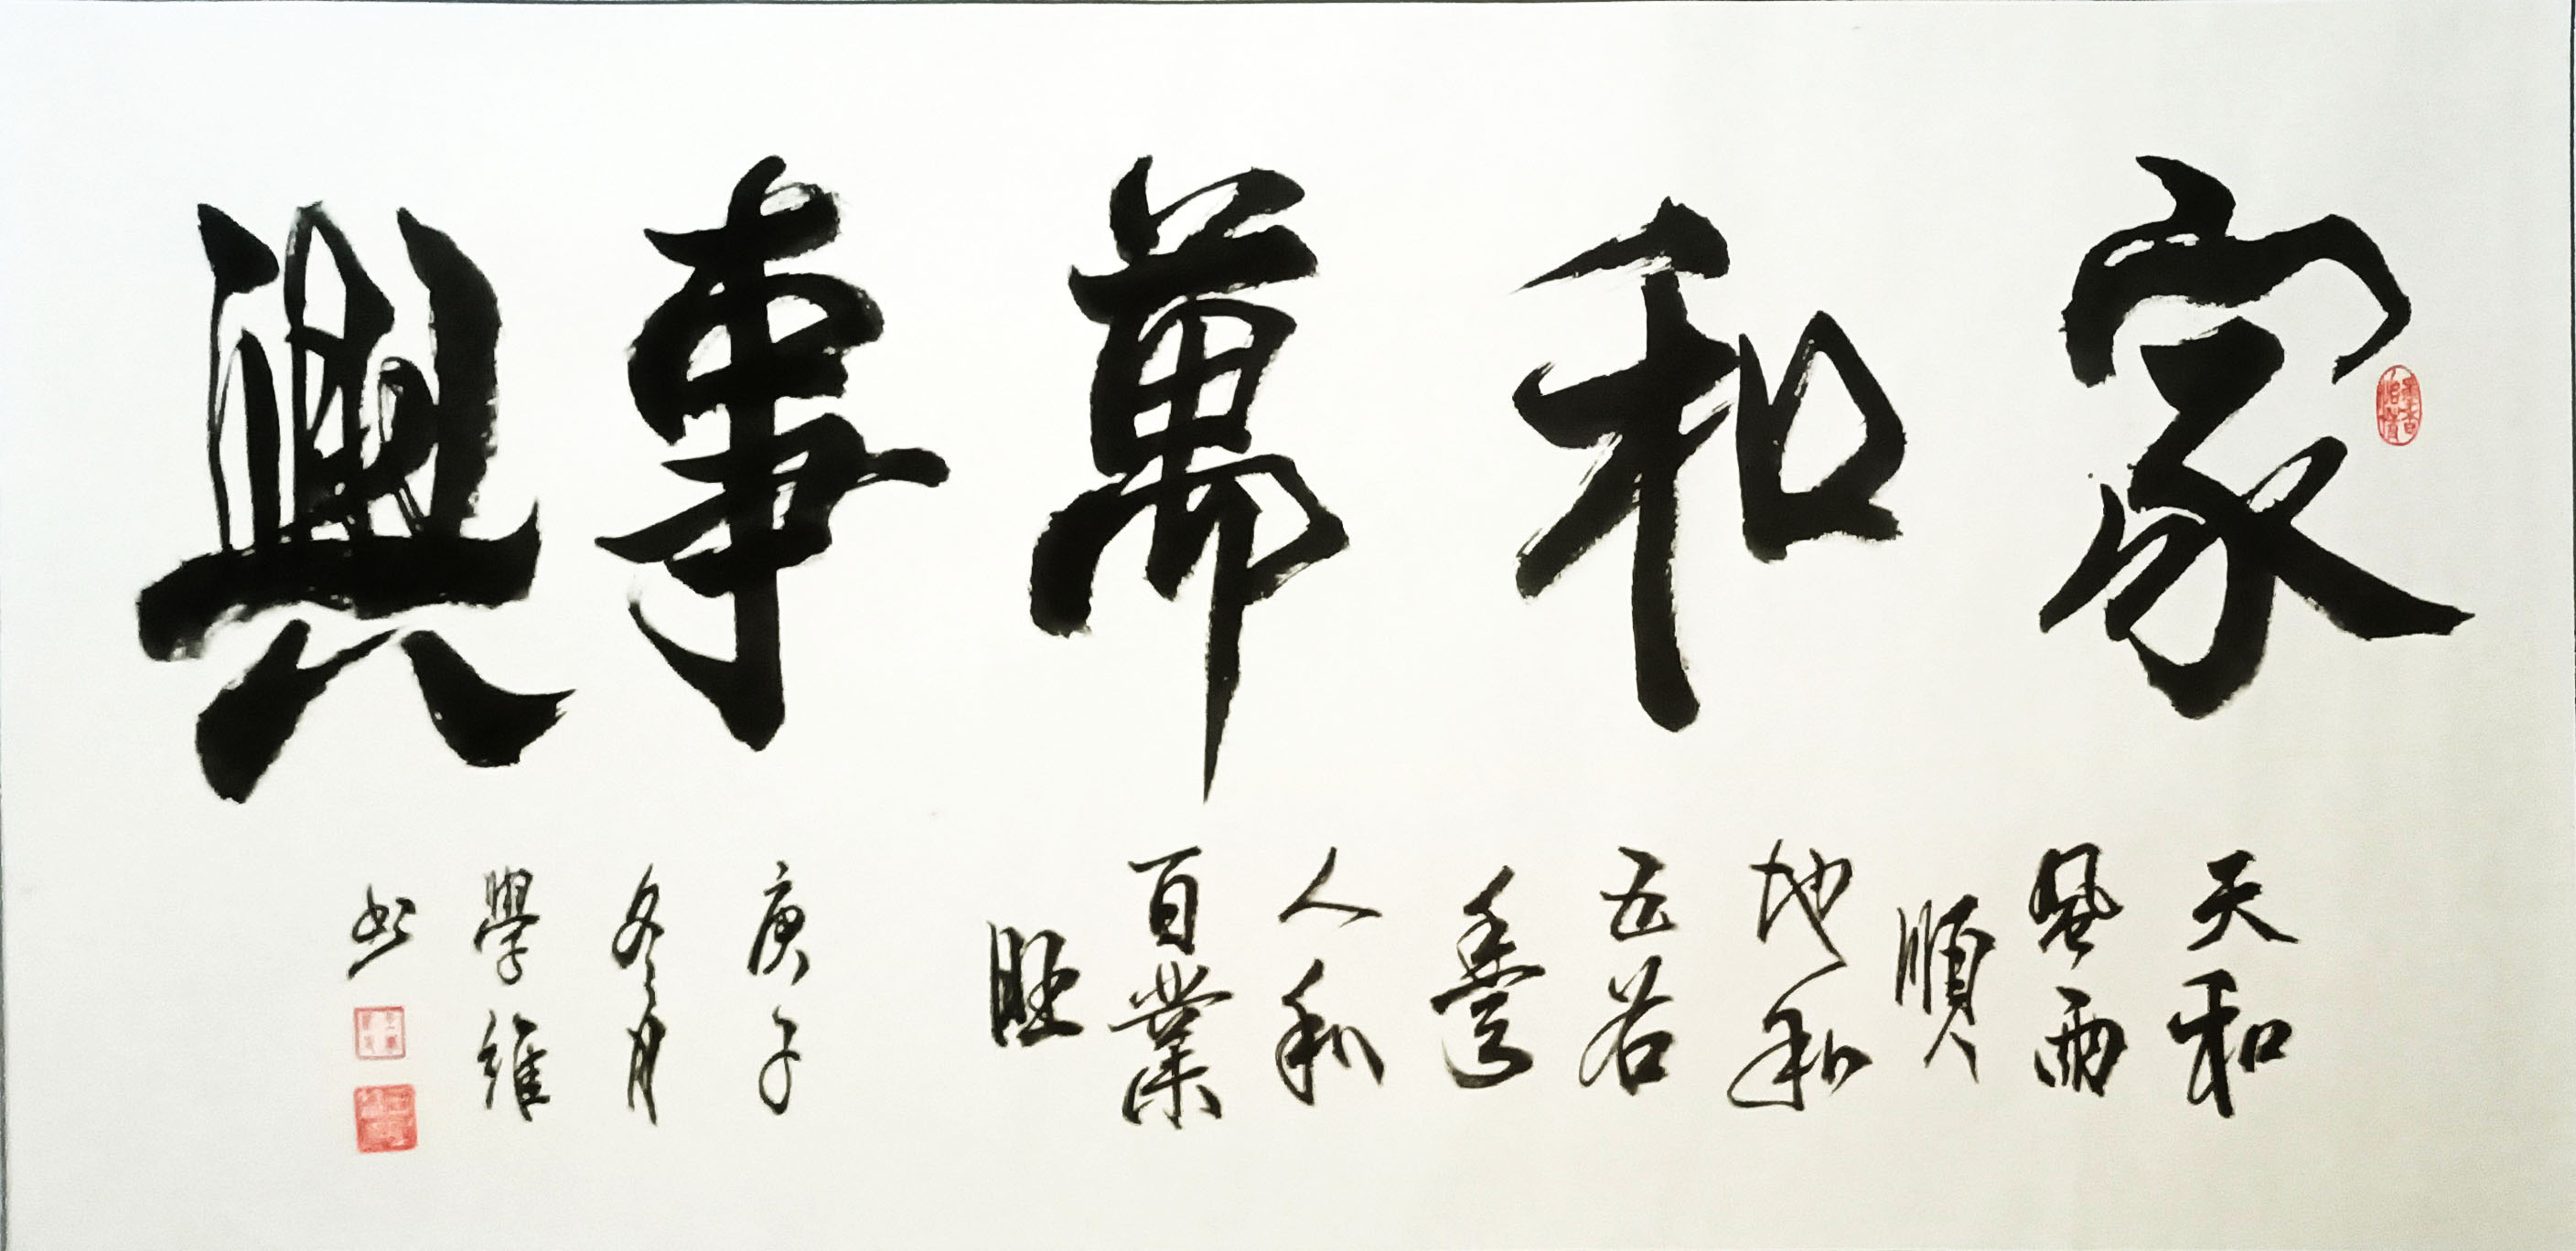 家和萬事興
天和
風雨
順
地和
五谷
人和
百業
旺
庚子
冬月
學維
书